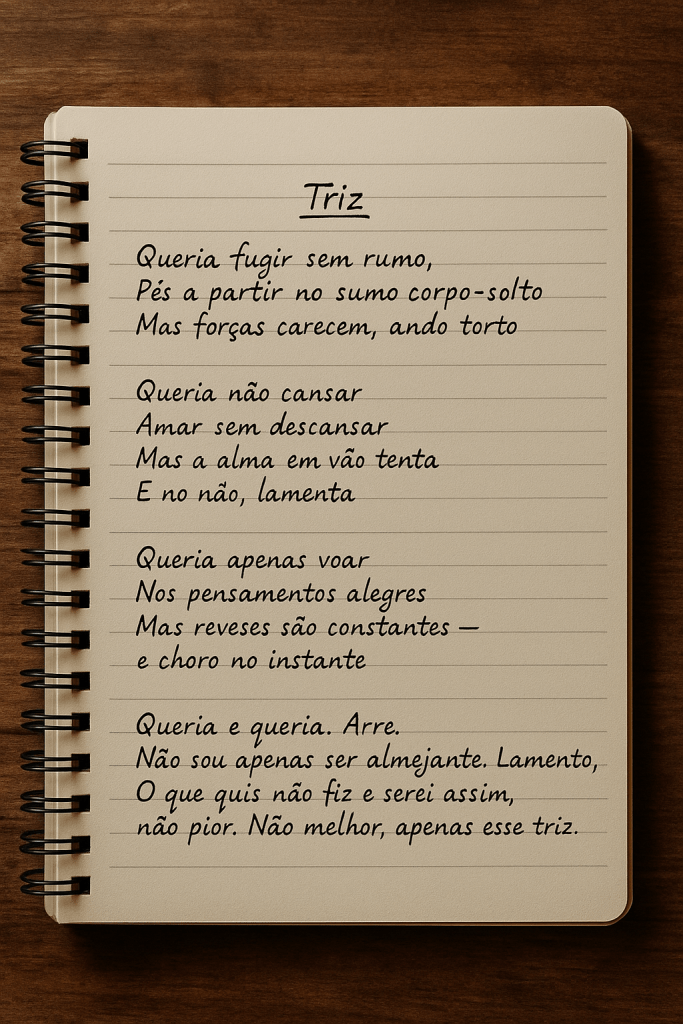 Triz
Queria fugir sem rumo,
Pés a partir no sumo corpo-solto
Mas forças carecem, ando torto
Queria não cansar
Amar sem descansar
Mas a alma em vão tenta
E no não, lamenta
Queria apenas voar
Nos pensamentos alegres
Mas reveses são constantes —
e choro no instante
Queria e queria. Arre.
Não sou apenas ser almejante. Lamento,
O que quis não fiz e serei assim,
não pior. Não melhor, apenas esse triz.